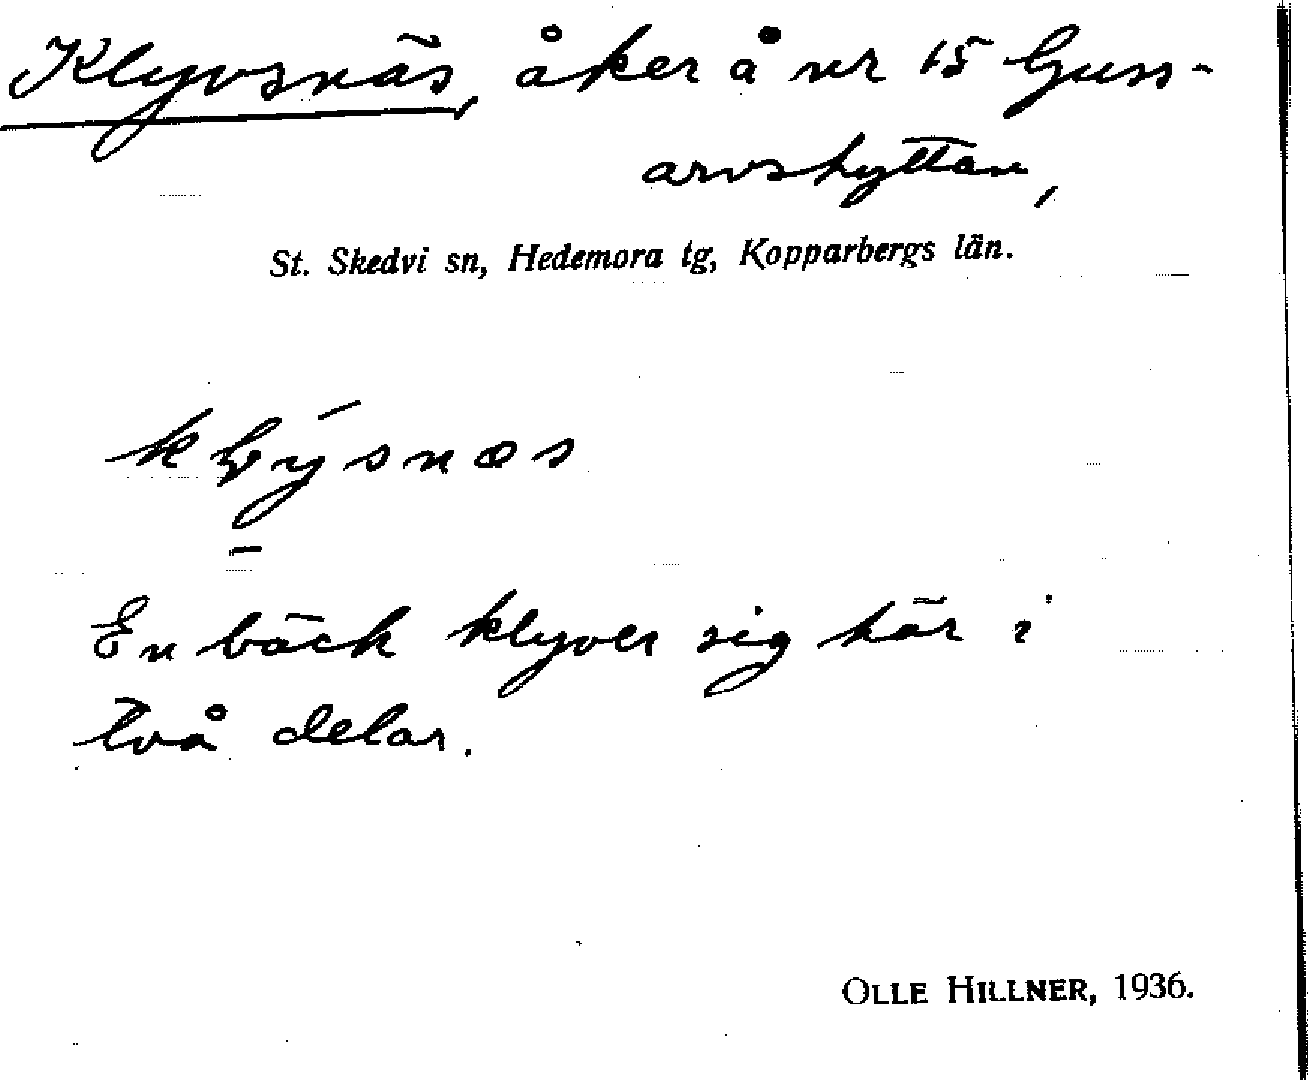 Klyvsnäs, åker å nr 15 Guss-
arvshyttan,
St. Skedvi sn, Hedemora tg, Kopparbergs län.
En bäck klyver sig här i
två delar.
OLLE HILLNER, 1936.